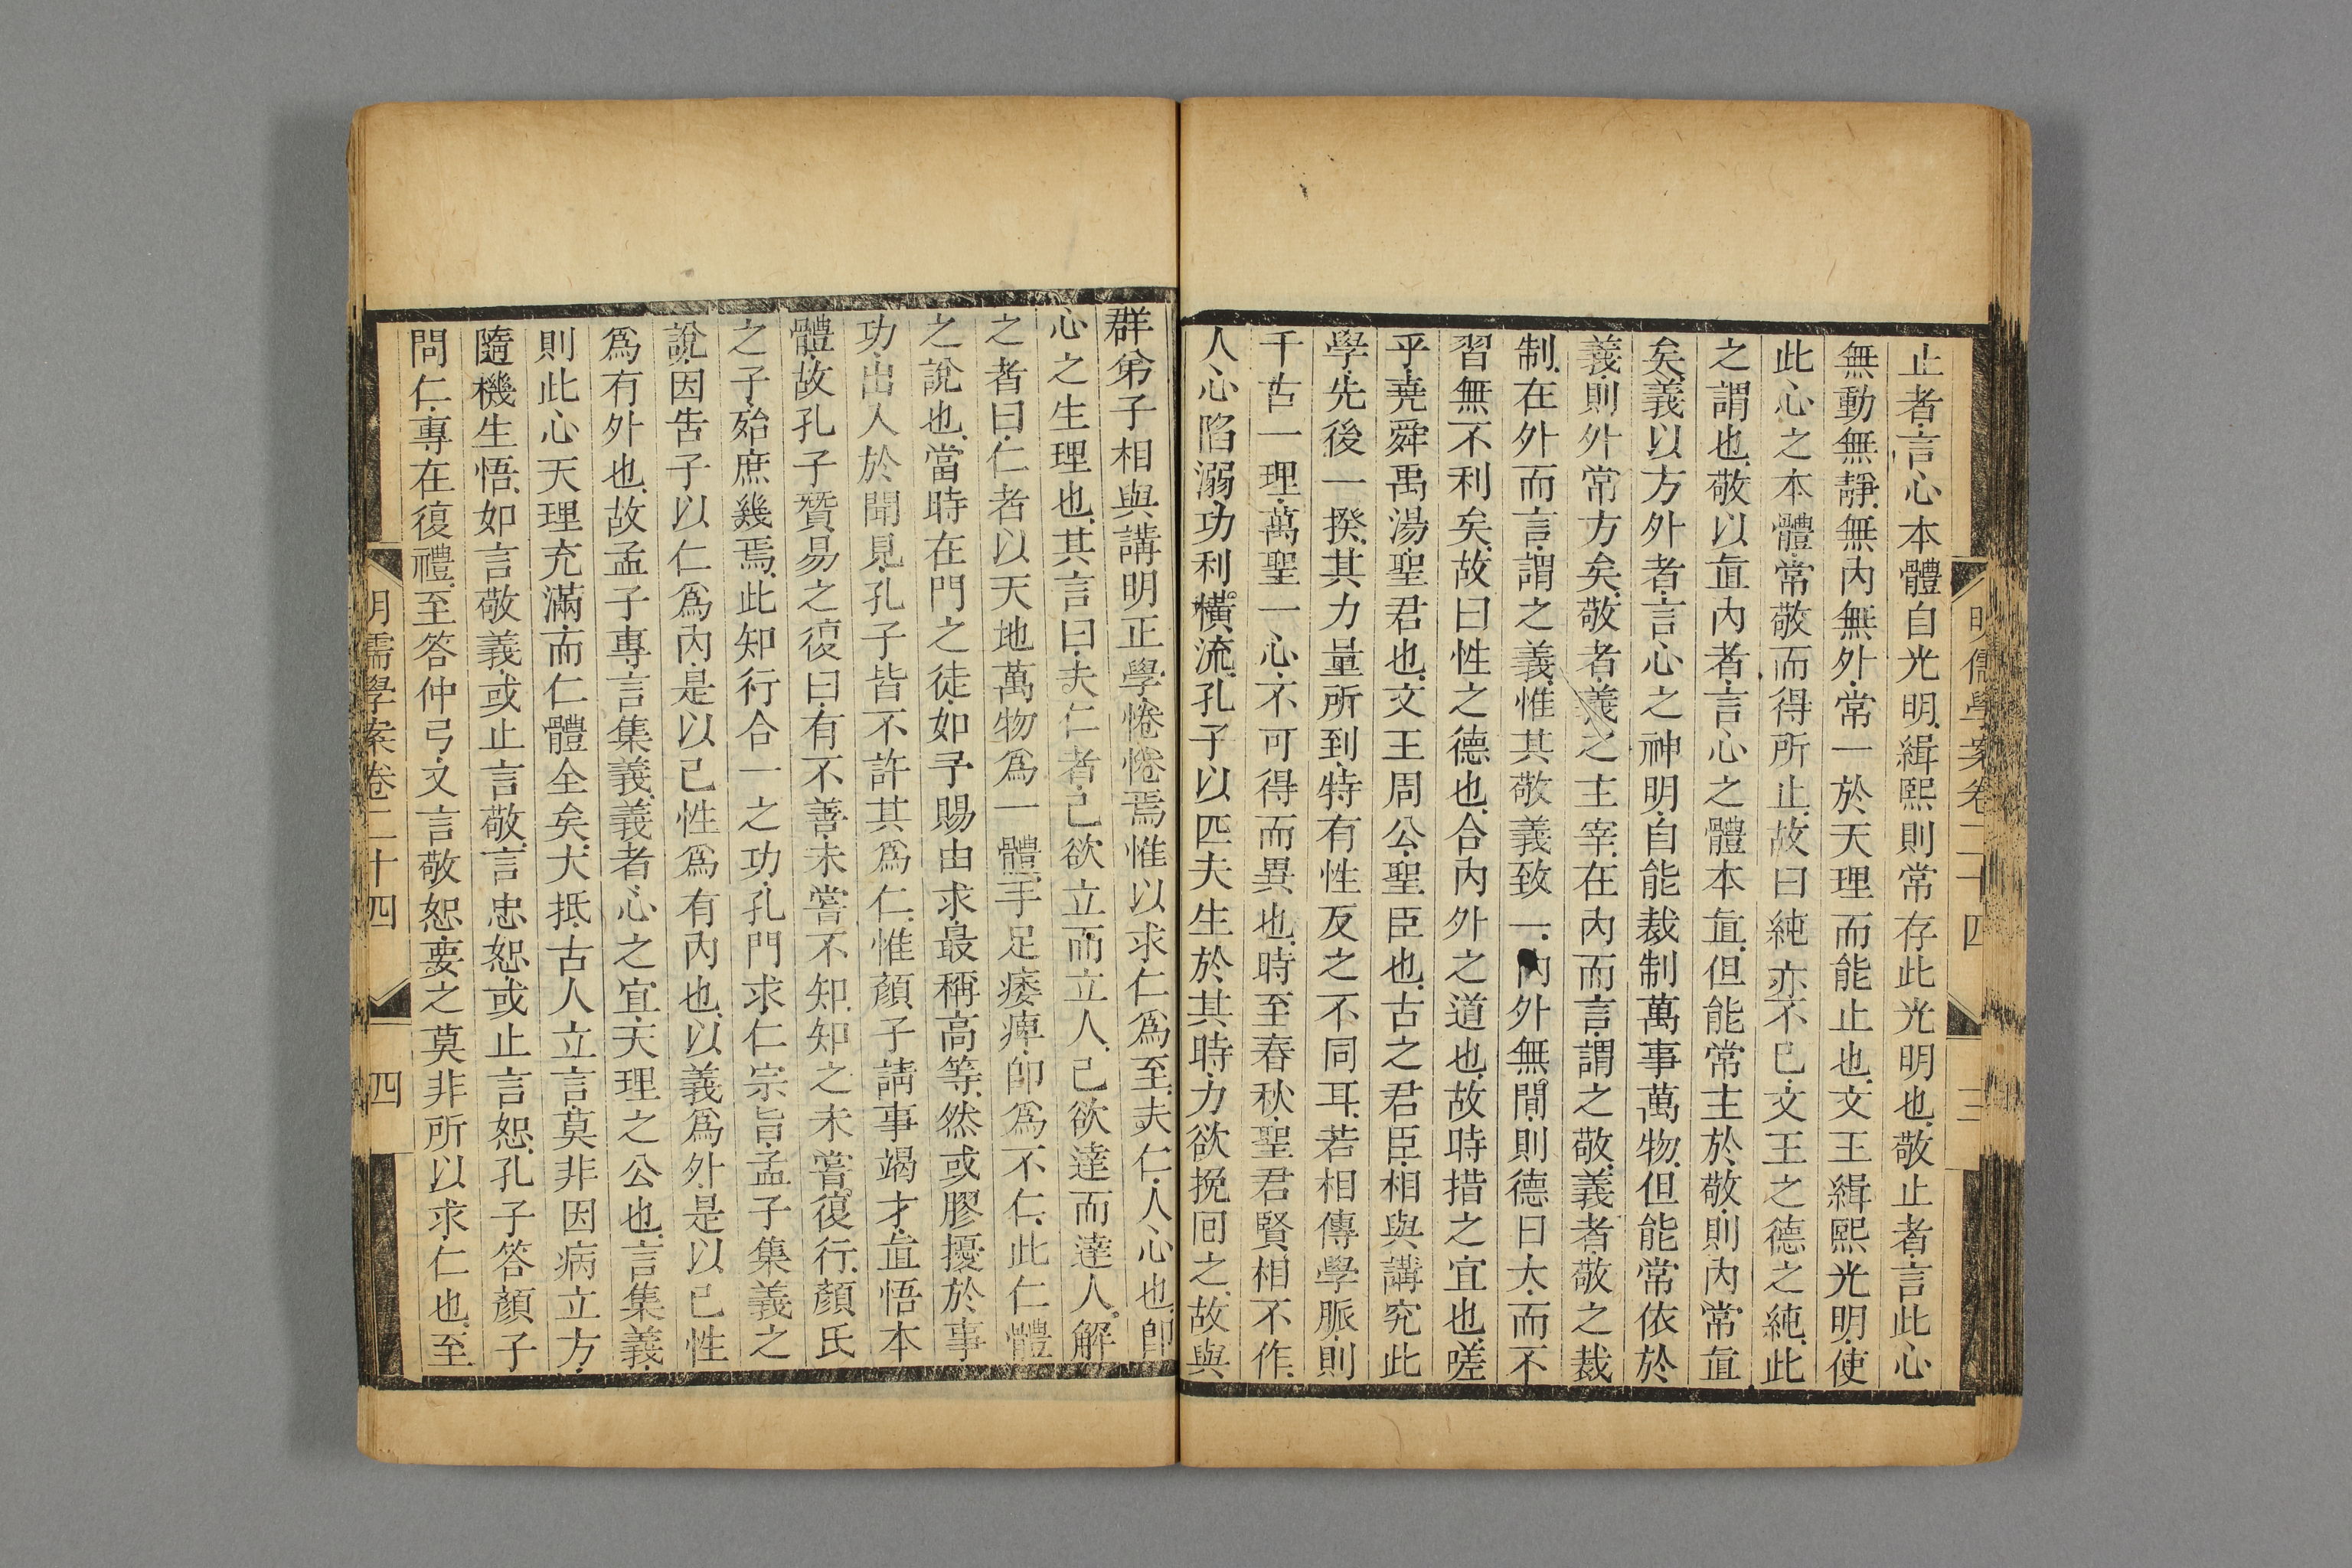 明儒學案卷二十四
三
止者言心本體自光明緝熙則常存此光明也敬止者言此心
無動無靜無內無外常一於天理而能止也文王緝熙光明使
此心之本體常敬而得所止故曰純亦不已文王之德之純此
之謂也敬以直內者言心之體本直但能常主於敬則內常直
矣義以方外者言心之神明自能裁制萬事萬物但能常依於
義則外常方矣敬者義之主宰在內而言謂之敬義者敬之裁
制在外而言謂之義惟其敬義致一內外無間則德日大而不
習無不利矣故曰性之德也合內外之道也故時措之宜也嗟
乎堯舜禹湯聖君也文王周公聖臣也古之君臣相與講究此
學先後一揆其力量所到特有性反之不同耳若相傳學脈則
千古一理萬聖一心不可得而異也時至春秋聖君賢相不作
人心陷溺功利橫流孔子以匹夫生於其時力欲挽回之故與
群弟子相與講明正學惓惓焉惟以求仁爲至夫仁人心也卽
心之生理也其言曰夫仁者己欲立而立人己欲達而達人解
之者曰仁者以天地萬物爲一體手足痿痺卽爲不仁此仁體
之說也當時在門之徒如予賜由求最稱高等然或膠擾於事
功出入於聞見孔子皆不許其爲仁惟顏子請事竭才直悟本
體故孔子贊易之復曰有不善未嘗不知知之未嘗復行顏氏
之子殆庶幾焉此知行合一之功孔門求仁宗旨孟子集義之
說因告子以仁爲內是以己性爲有內也以義爲外是以己性
爲有外也故孟子專言集義義者心之宜天理之公也言集義
則此心天理充滿而仁體全矣大抵古人立言莫非因病立方
隨機生悟如言敬義或止言敬言忠恕或止言恕孔子答顏子
問仁專在復禮至答仲弓又言敬恕要之莫非所以求仁也至
明儒學案卷二十四
四